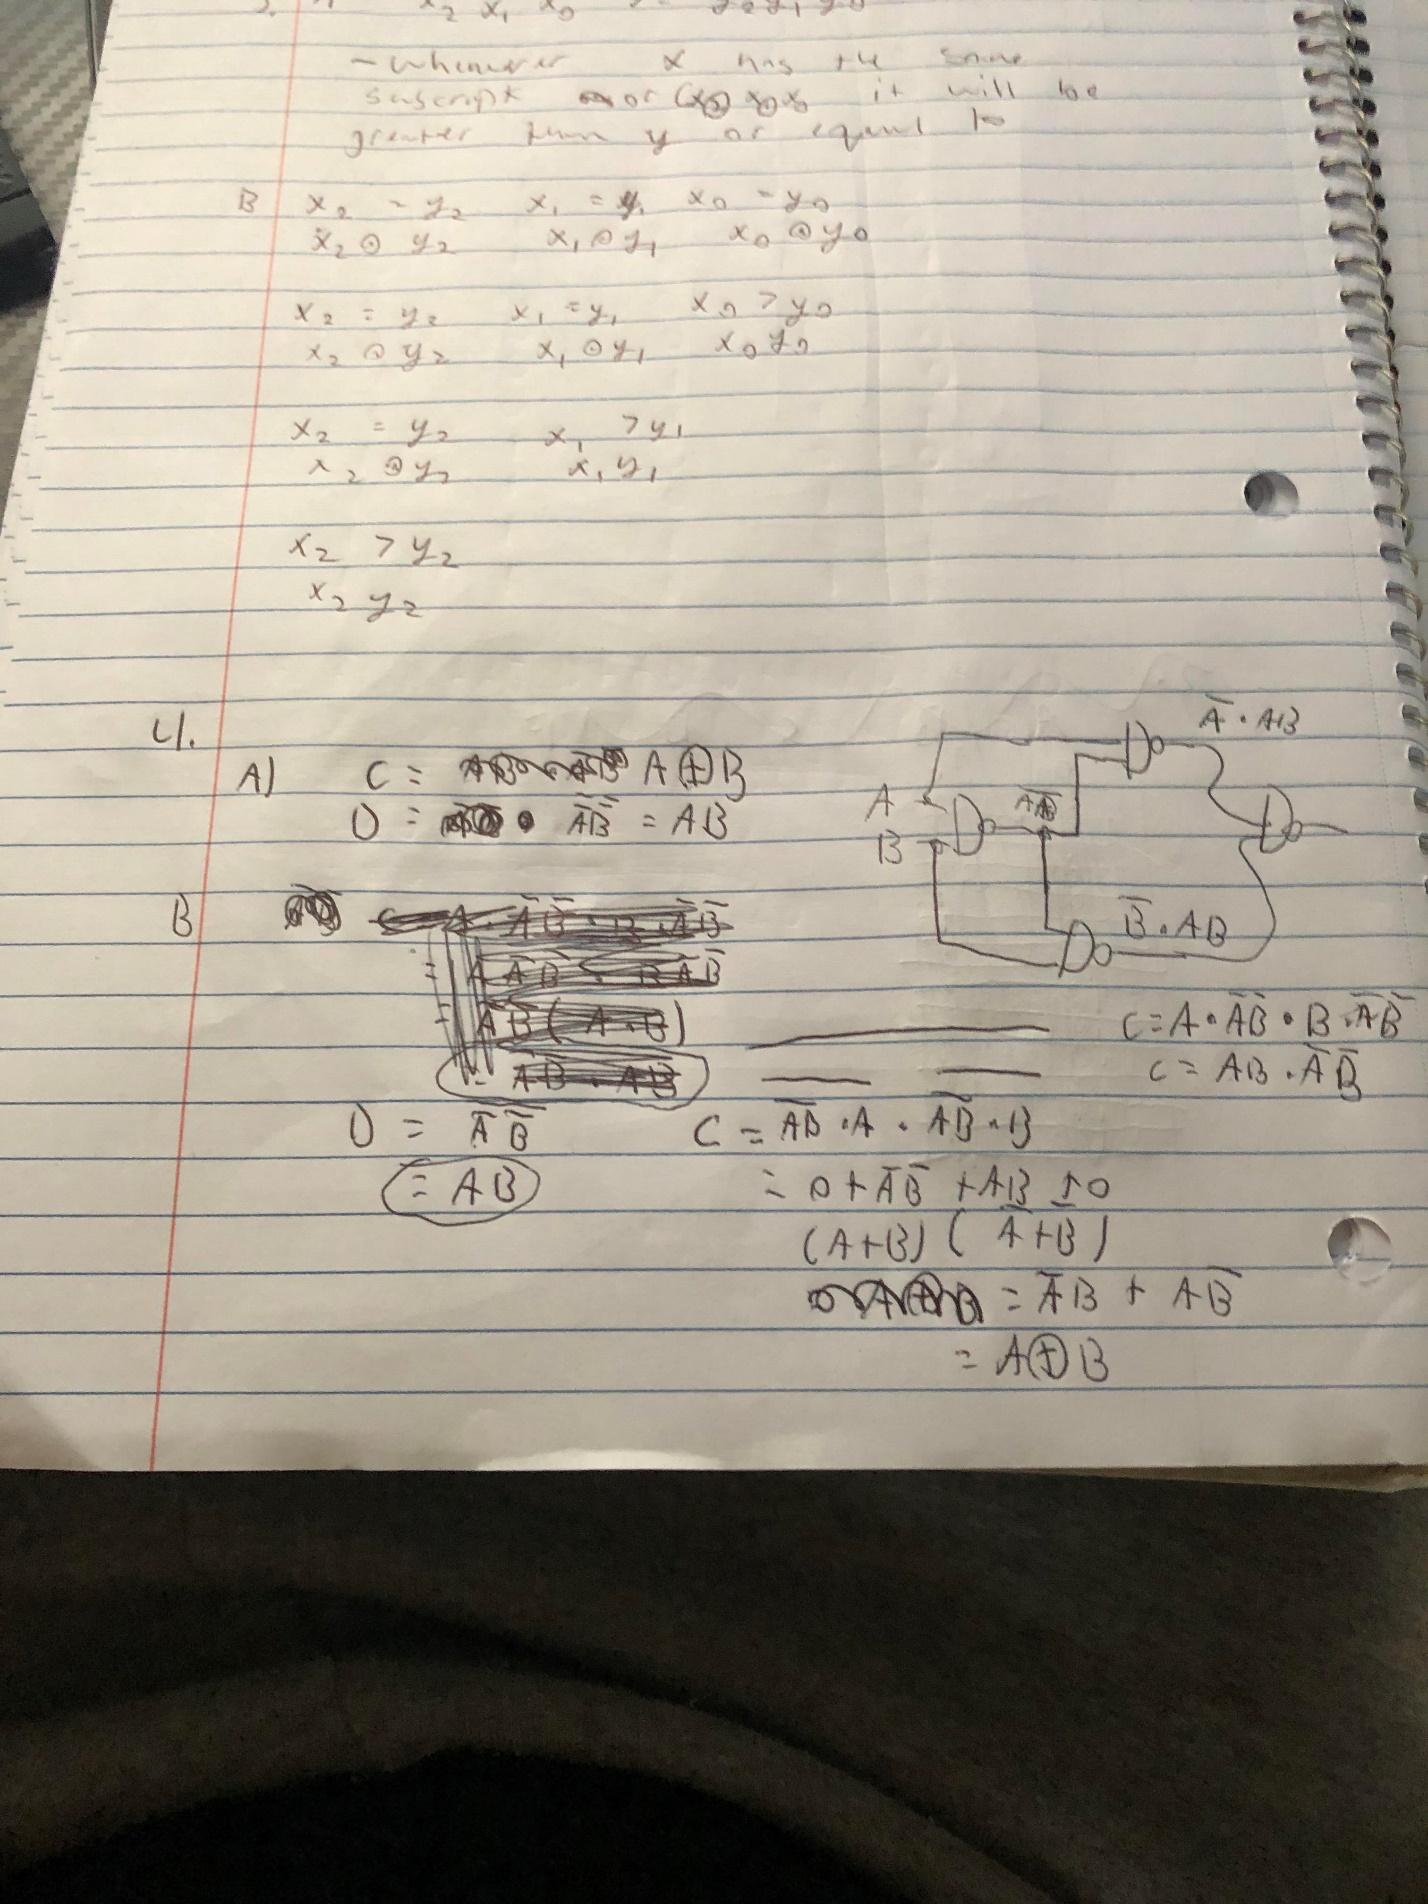 - whenever x has the same
subscript or it will be
greater than y or equal to
B x₂ = y₂ x₁ = y₁ x₀ = y₀
x₂ ⊙ y₂ x₁ ⊙ y₁ x₀ ⊙ y₀
x₂ = y₂ x₁ = y₁ x₀ > y₀
x₂ ⊙ y₂ x₁ ⊙ y₁ x₀ y₀
x₂ = y₂ x₁ > y₁
x₂ ⊙ y₂ x₁ y₁
x₂ > y₂
x₂ y₂
4.
A) C = A ⊕ B
D = A̅B̅ = AB
A
B
A̅ · AB
B̅ · AB
B
C = A · A̅B̅ · B · A̅B̅
C = AB · A̅B̅
D = A̅B̅
= AB
C = A̅B̅ · A · A̅B̅ · B
= 0 + A̅B̅ + AB + 0
(A+B) (A̅+B̅)
= A̅B + AB̅
= A ⊕ B